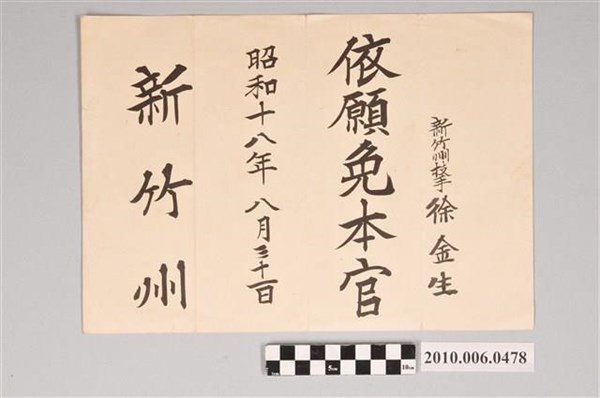 新竹州技手 徐金生
依願免本官
昭和十八年八月三十一日
新竹州
5cm 10cm
2010.006.0478